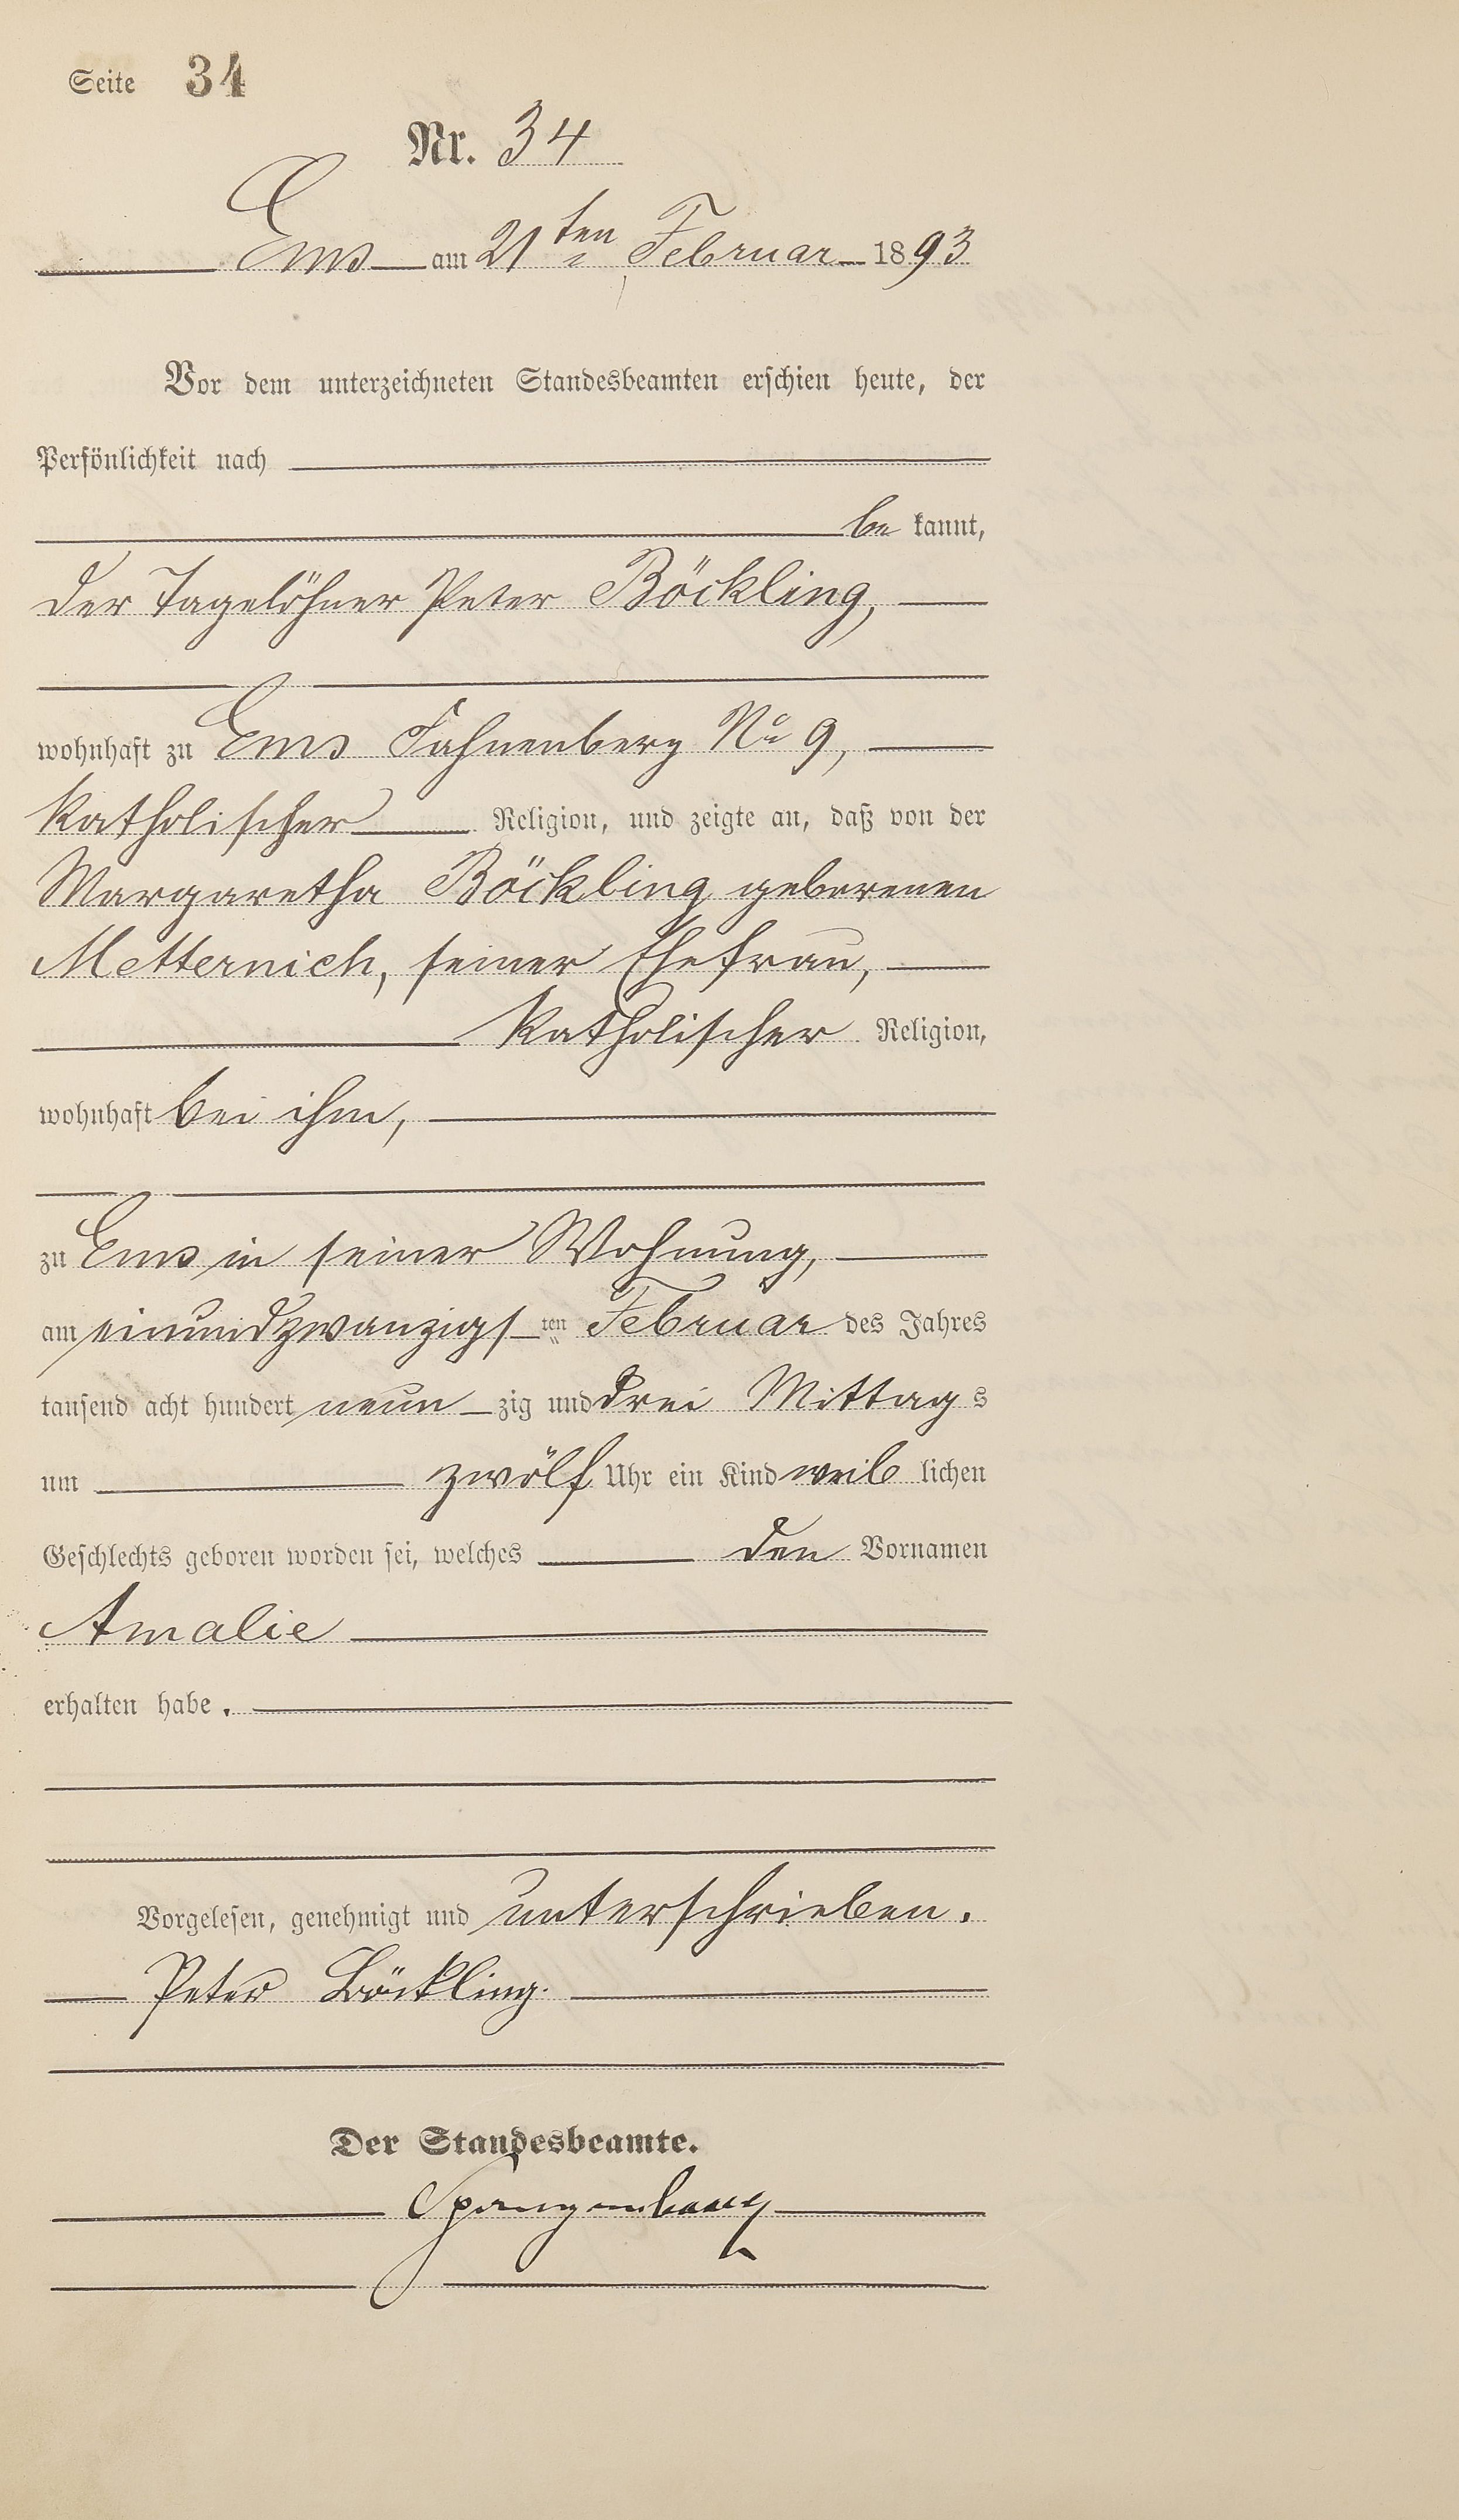 Seite 34
Nr. 34
Ems am 21ten Februar 1893
Vor dem unterzeichneten Standesbeamten erschien heute, der
Persönlichkeit nach
be kannt,
der Tagelöhner Peter Böckling,
wohnhaft zu Ems Fahnenberg No 9,
katholischer Religion, und zeigte an, daß von der
Margaretha Böckling geborenen
Metternich, seiner Ehefrau,
katholischer Religion,
wohnhaft bei ihm,
zu Ems in seiner Wohnung,
am einundzwanzigs ten Februar des Jahres
tausend acht hundert neun zig und drei Mittag s
um zwölf Uhr ein Kind weib lichen
Geschlechts geboren worden sei, welches den Vornamen
Amalie
erhalten habe.
Vorgelesen, genehmigt und unterschrieben.
Peter Böckling.
Der Standesbeamte.
Spangenberg